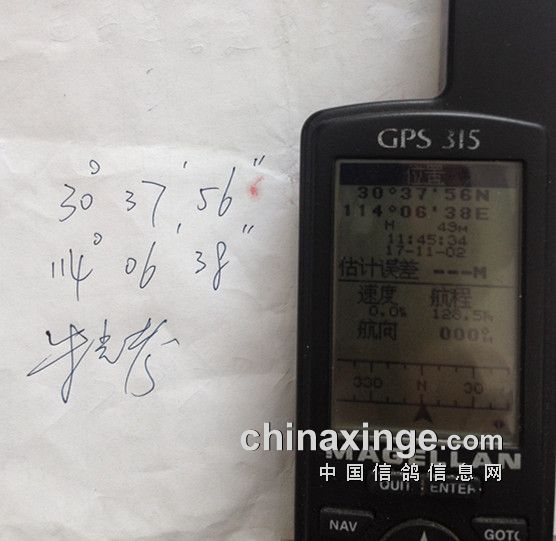 30° 37' 56"
114° 06' 38"
GPS 315
位置
30°37'56N
114°06'38E
H 49M
11:45:34
17-11-02
估计误差 ---M
速度 航程
0.0% 128.5%
航向 000°
330 N 30
MAGELLAN
QUIT ENTER
NAV GOTO
chinaxinge.com
中国信鸽信息网